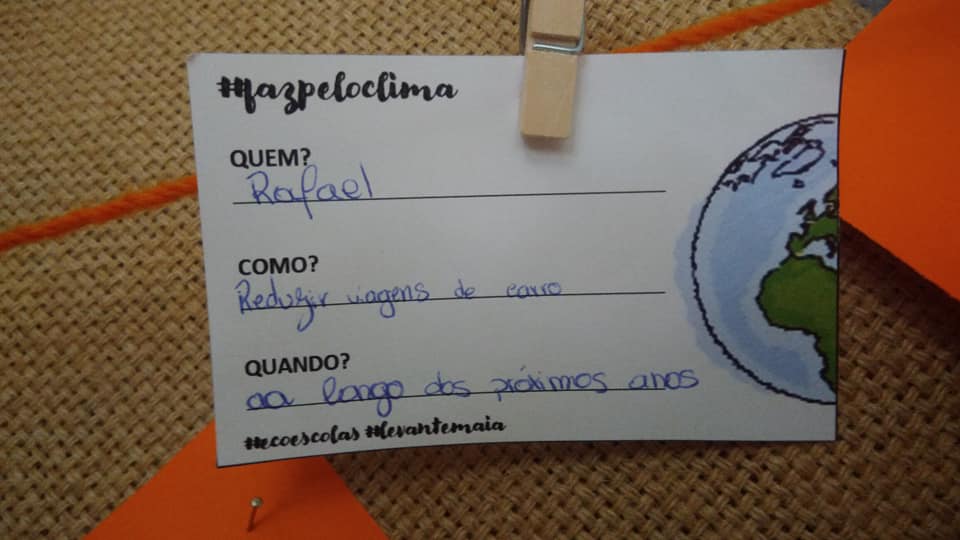 #fazpeloclima
QUEM?
Rafael
COMO?
Reduzir viagens de carro
QUANDO?
ao longo dos próximos anos
#ecoescolas #levantemaia